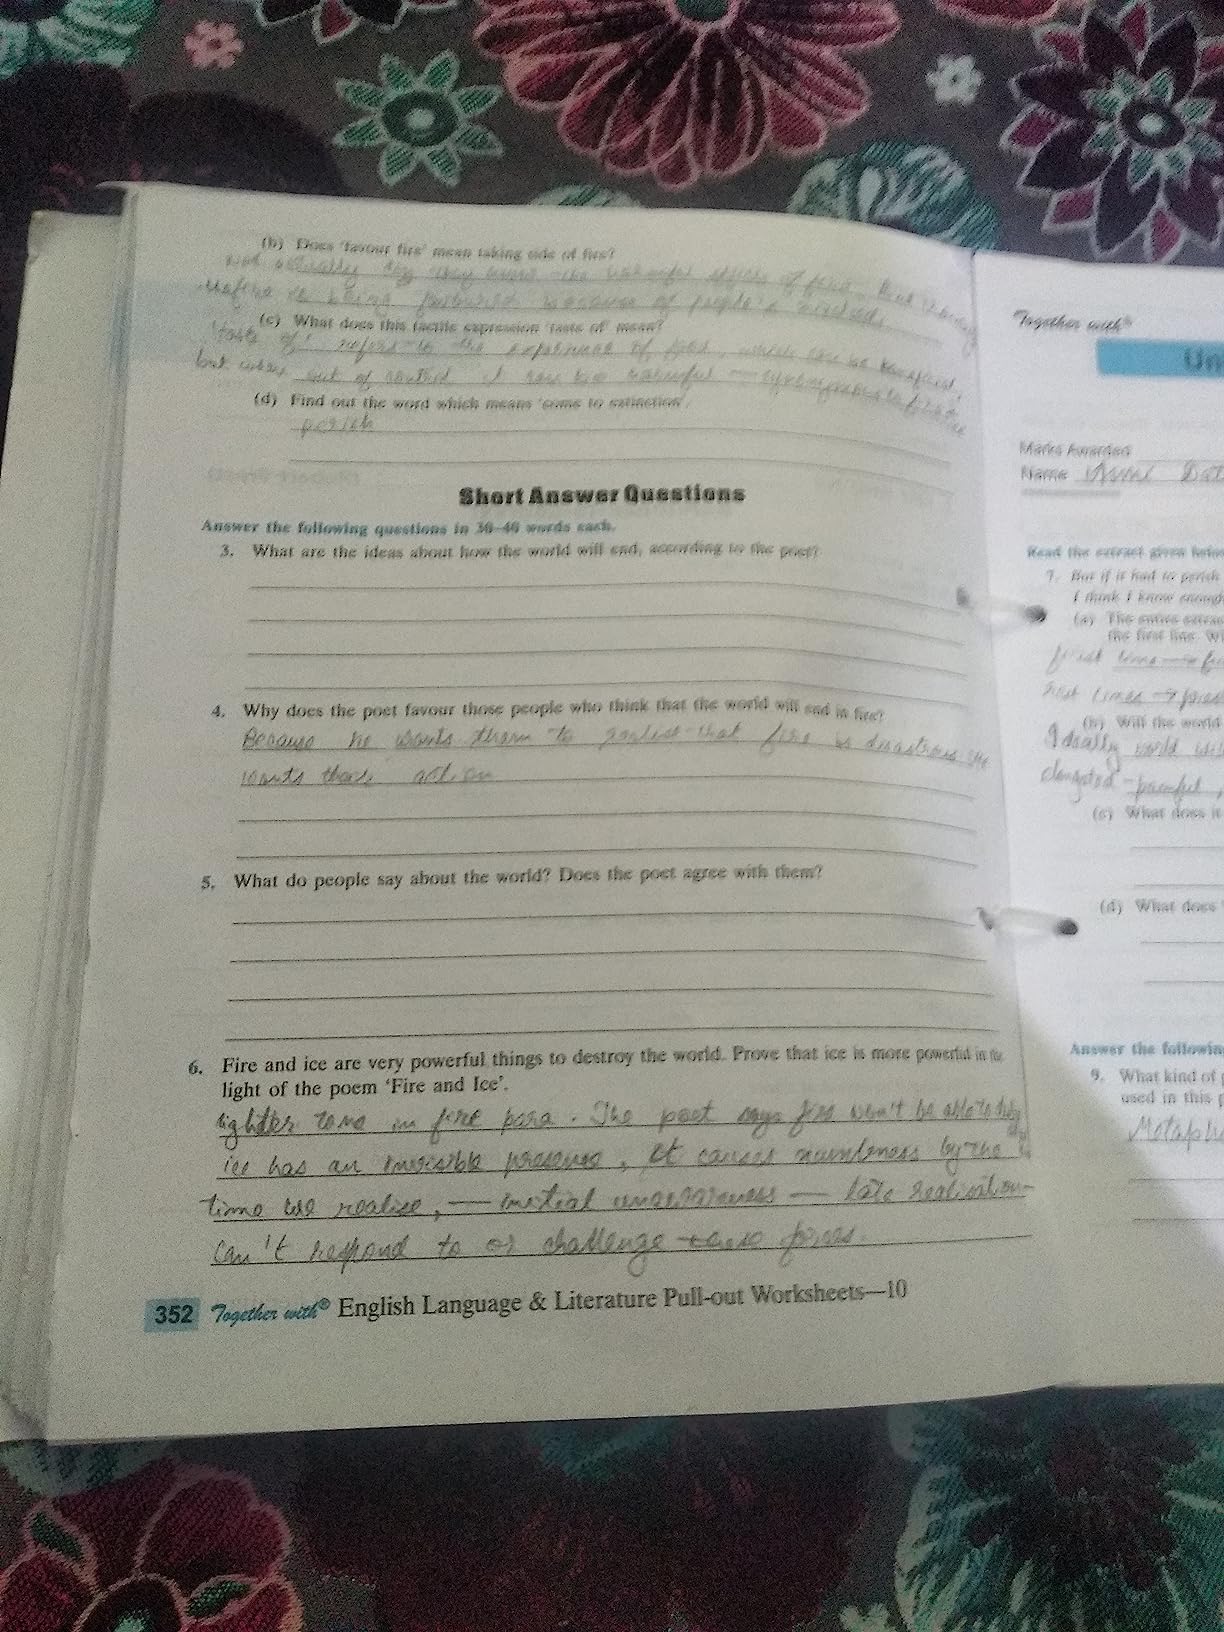 (b) Does 'favour fire' mean taking side of fire?
Not actually they the harmful effects of fire
because of people's
(c) What does this tactile expression 'taste of' mean?
'taste of' refers to the experience of fire, which can be
but when out of control it can be harmful —
(d) Find out the word which means 'come to extinction'.
perish
Short Answer Questions
Answer the following questions in 30–40 words each.
3. What are the ideas about how the world will end, according to the poet?
4. Why does the poet favour those people who think that the world will end in fire?
Because he wants them to that fire is disastrous
wants their action
5. What do people say about the world? Does the poet agree with them?
6. Fire and ice are very powerful things to destroy the world. Prove that ice is more powerful in the
light of the poem 'Fire and Ice'.
lighter tone in fire para. The poet says fire won't be able to
ice has an invisible presence, It causes numbness by the
time we realise, — initial unawareness — late realisation—
can't respond to or challenge forces.
352 Together with® English Language & Literature Pull-out Worksheets—10
Together with®
Un
Marks Awarded
Name
Read the extract given below
7. But if it had to perish
I think I know enough
(a) The entire extrac
the first line. Wh
first line →
lines →
(b) Will the world
Ideally world will
painful,
(c) What does it
(d) What does
Answer the following
9. What kind of p
used in this p
Metaph